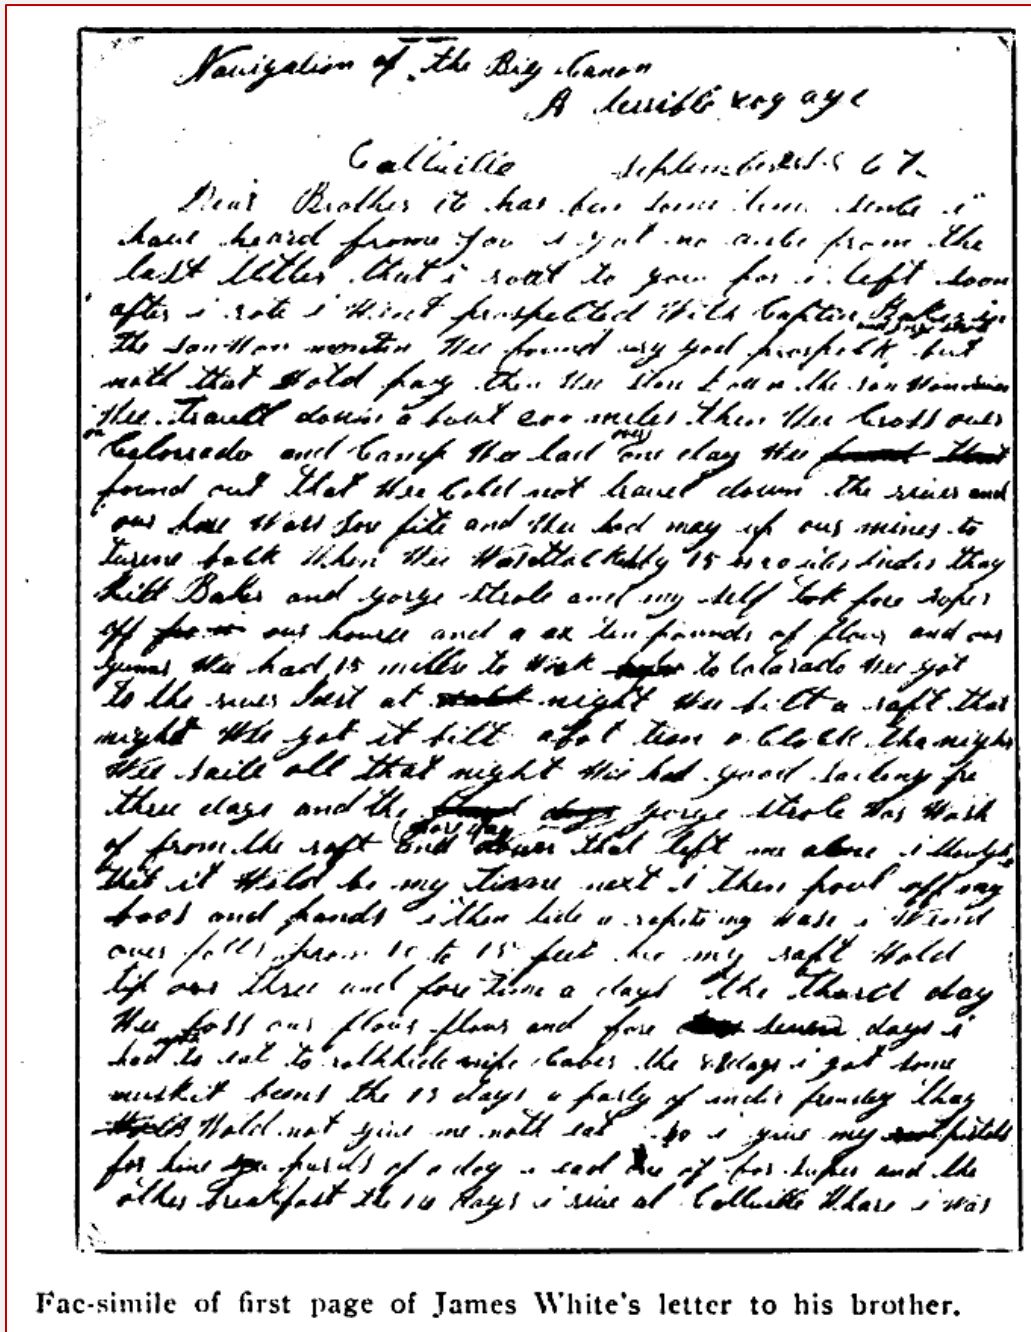 Navigation of the Big Canon
A terrible voy age
Callville September 67.
Dear Brother it has ben some time senCe i
have heard frome you i got no anCe from the
last letter that i roat to you for i left soon
after i rote i Went prospeCted With Captin Baker
the son Won montin Wee found vry god prospeCk but
noth that Wold pay then Wee Down the son Won
Wee Travell down a bout 200 miles then Wee Cross over
on Colorado and Camp Wee lad over one day Wee
found out that Wee Cold not travel down the river and
our hase Wass Sore fite and Wee had may up our mines to
turene baCk When Wee Was 15 indes thay
kilt Baker and gorge strole and my self tok fore ropes
off our hourse and a ax ten pounds of flour and our
gunns Wee had 15 milles to WoCk to Colarado Wee got
to the river Jest at night Wee bilt a raft that
night Wee got it bilt abot tenn o Clock tha night
Wee saile all that night Wee had good sailing fro
three days and the fore day gorge strole Was Wash
of from the raft and down that left me alone i thought
that it Wold be my time next i then pool off my
boos and pands i then tide a rope to my Wase i Wend
over falls from 10 to 15 feet hie my raft Wold
tip over three and fore time a days the thurd day
Wee loss our flour flour and fore seven days i
had noth to eat to ralhhide nife Caber the 8 days i got some
muskit beens the 13 days a party of indis frendey thay
Wold not give me noth eat so i give my pistols
for hine pards of a dog i ead one of for super and the
other breakfast the 14 days i rive at Callville Whare i Was
Fac-simile of first page of James White's letter to his brother.